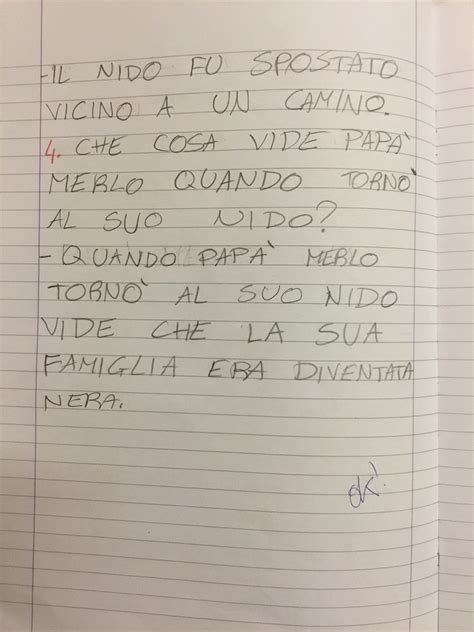 -IL NIDO FU SPOSTATO
VICINO A UN CAMINO.
4. CHE COSA VIDE PAPA'
MERLO QUANDO TORNO'
AL SUO NIDO?
- QUANDO PAPA' MERLO
TORNO' AL SUO NIDO
VIDE CHE LA SUA
FAMIGLIA ERA DIVENTATA
NERA.
ok!